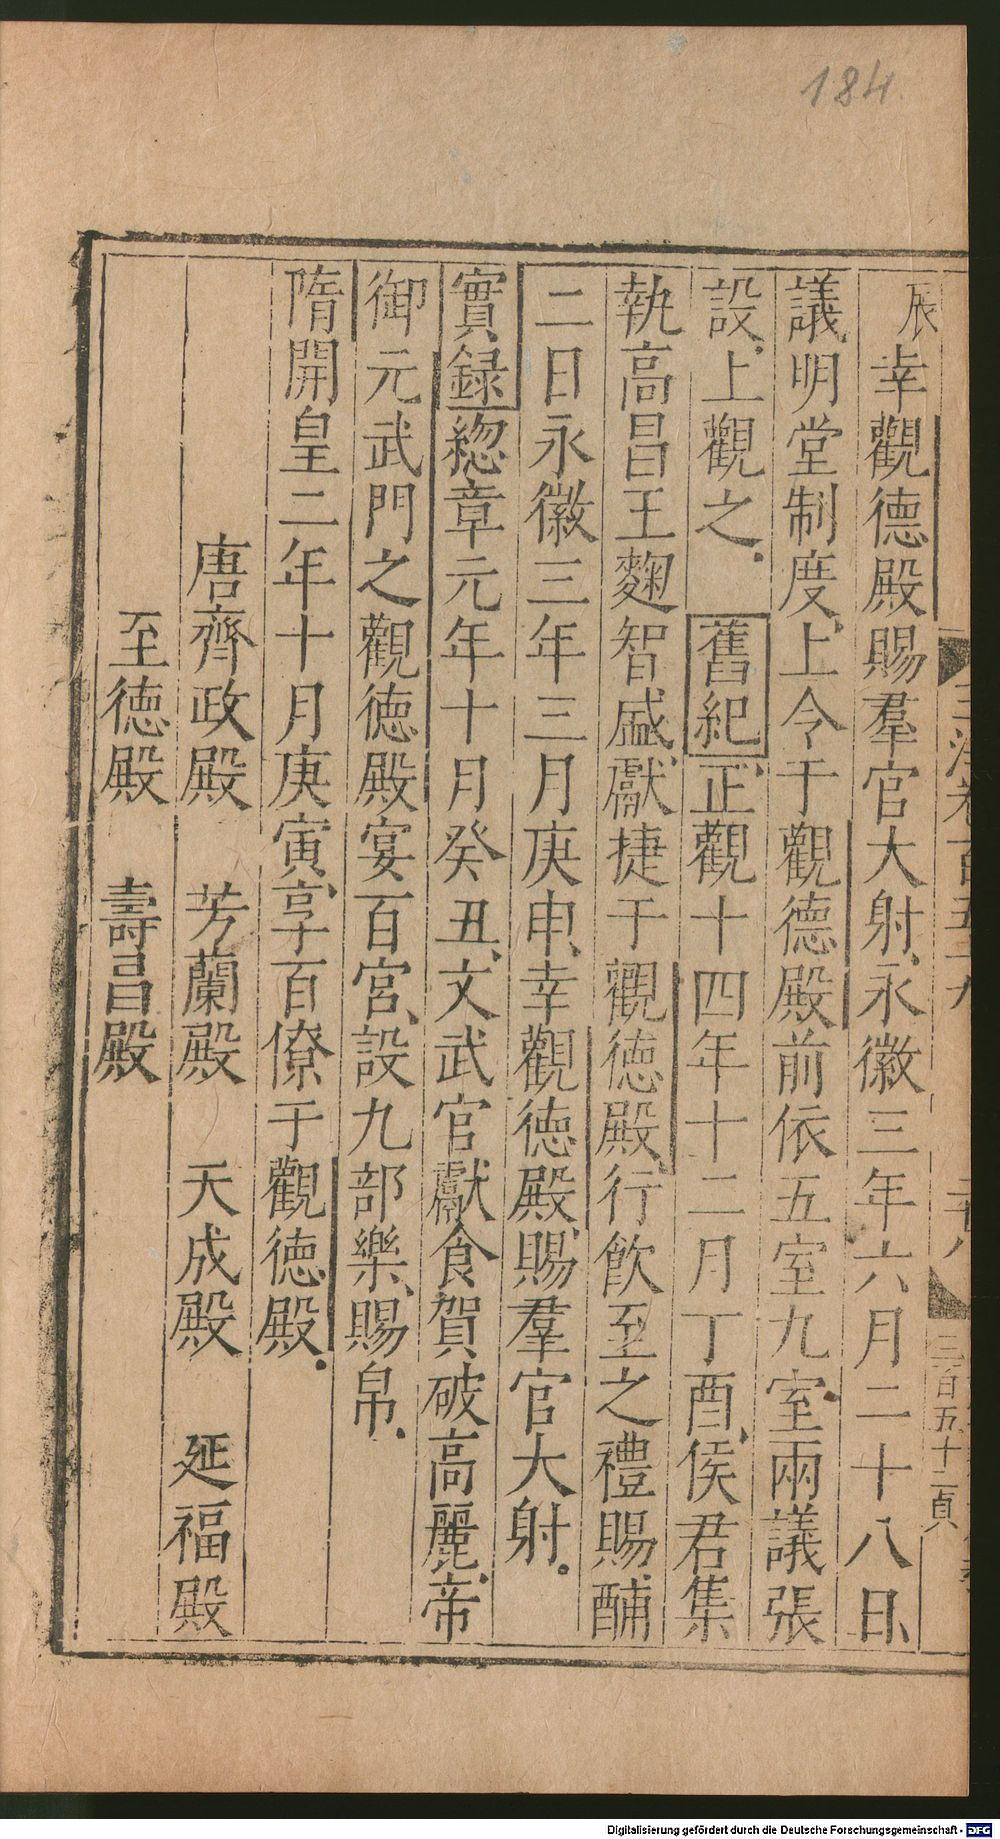 184
辰
幸觀德殿賜羣官大射永徽三年六月二十八日
議明堂制度上令于觀德殿前依五室九室兩議張
設上觀之 舊紀正觀十四年十二月丁酉侯君集
執高昌王麴智盛獻捷于觀徳殿行飲至之禮賜酺
二日永徽三年三月庚申幸觀徳殿賜羣官大射
實録緫章元年十月癸丑文武官獻食賀破高麗帝
御元武門之觀徳殿宴百宮設九部樂賜帛
隋開皇二年十月庚寅享百僚于觀徳殿
唐齊政殿 芳蘭殿 天成殿 延福殿
至徳殿 壽昌殿
三百五十二貞
Digitalisierung gefördert durch die Deutsche Forschungsgemeinschaft - DFG